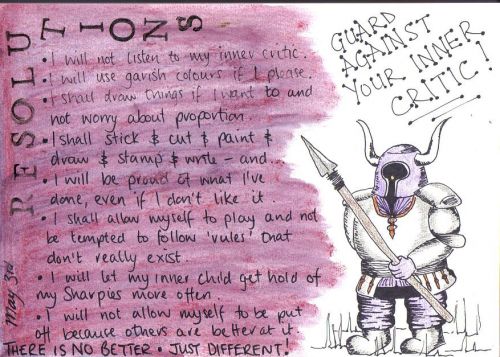 RESOLUTIONS
• I will not listen to my inner critic.
• I will use garish colours if I please.
• I shall draw things if I want to and
not worry about proportion.
• I shall stick & cut & paint &
draw & stamp & write – and...
• I will be proud of what I've
done, even if I don't like it.
• I shall allow myself to play and not
be tempted to follow 'rules' that
don't really exist.
• I will let my inner child get hold of
my Sharpies more often.
• I will not allow myself to be put
off because others are better at it.
THERE IS NO BETTER • JUST DIFFERENT!
May 3rd
GUARD
AGAINST
YOUR INNER
CRITIC!